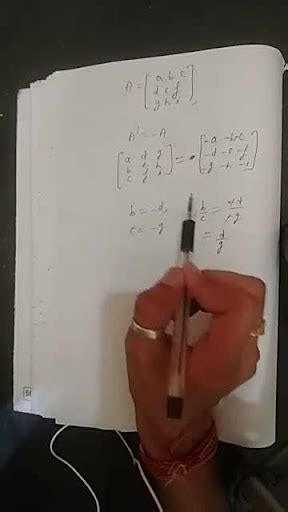 A = [ a b c
d e f
g h i ]
A' = -A
[ a d g
b e h
c f i ] = [ -a -b -c
-d -e -f
-g -h -i ]
b = -d, b/c = +d/+g
c = -g = d/g